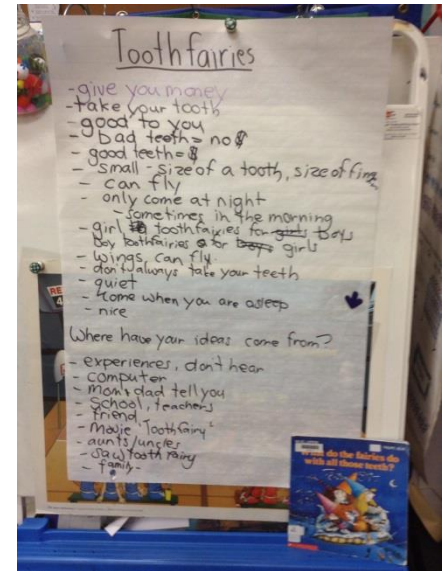 Toothfairies
- give you money
- take your tooth
- good to you
- bad teeth = no $
- good teeth = $
- small - size of a tooth, size of finger
- can fly
- only come at night
- sometimes in the morning
- girl toothfairies for girls boys
boy toothfairies for boys girls
- wings, can fly
- don't always take your teeth
- quiet
- come when you are asleep
- nice
Where have your ideas come from?
- experiences, don't hear
- computer
- mom + dad tell you
- school, teachers
- friend
- movie "Toothfairy"
- aunts/uncles
- saw tooth fairy
- family -
What do the fairies do
with all those teeth?